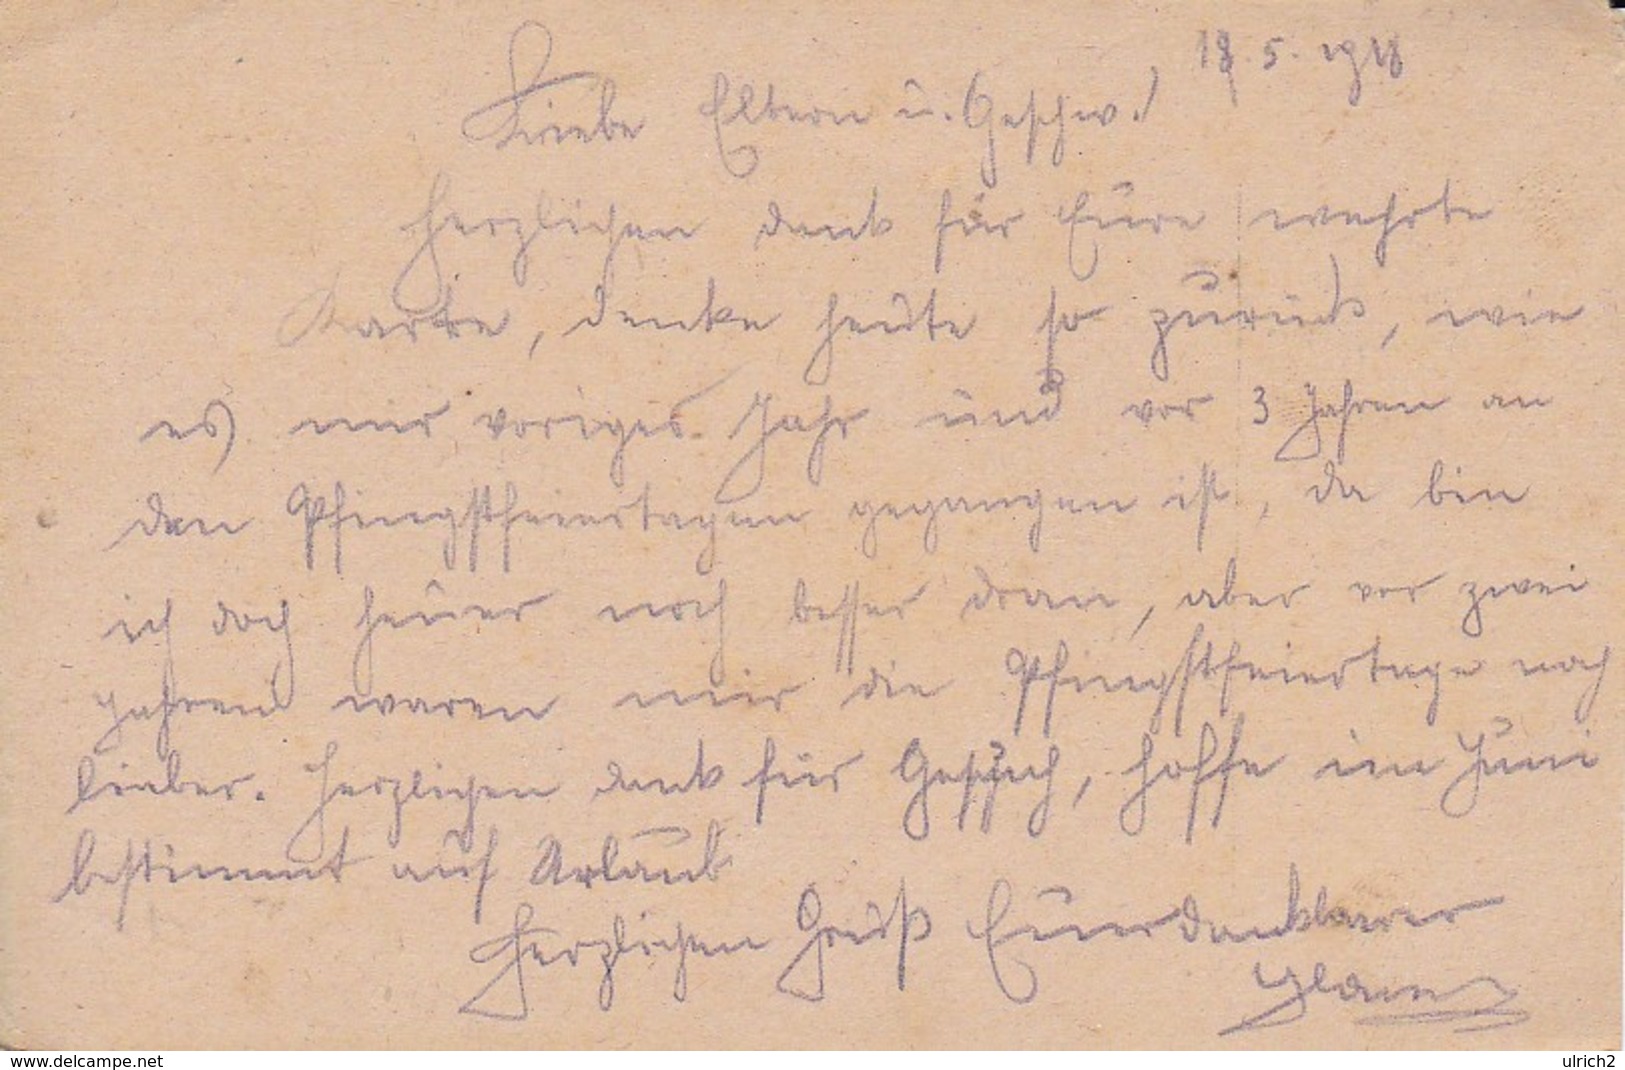 18.5.1918
Liebe Eltern u. Geschw.!
Herzlichen dank für Eure wehrte
Karte, denke heute so zurück, wie
es mir voriges Jahr und vor 3 Jahren an
den Pfingstfeiertagen gegangen ist, da bin
ich doch heuer noch besser dran, aber vor zwei
Jahren waren mir die Pfingstfeiertage noch
lieber. Herzlichen dank für Gesuch, hoffe im Juni
bestimmt auf Urlaub
Herzlichen Gruß Euer dankbarer
delcampe.net
ulrich2